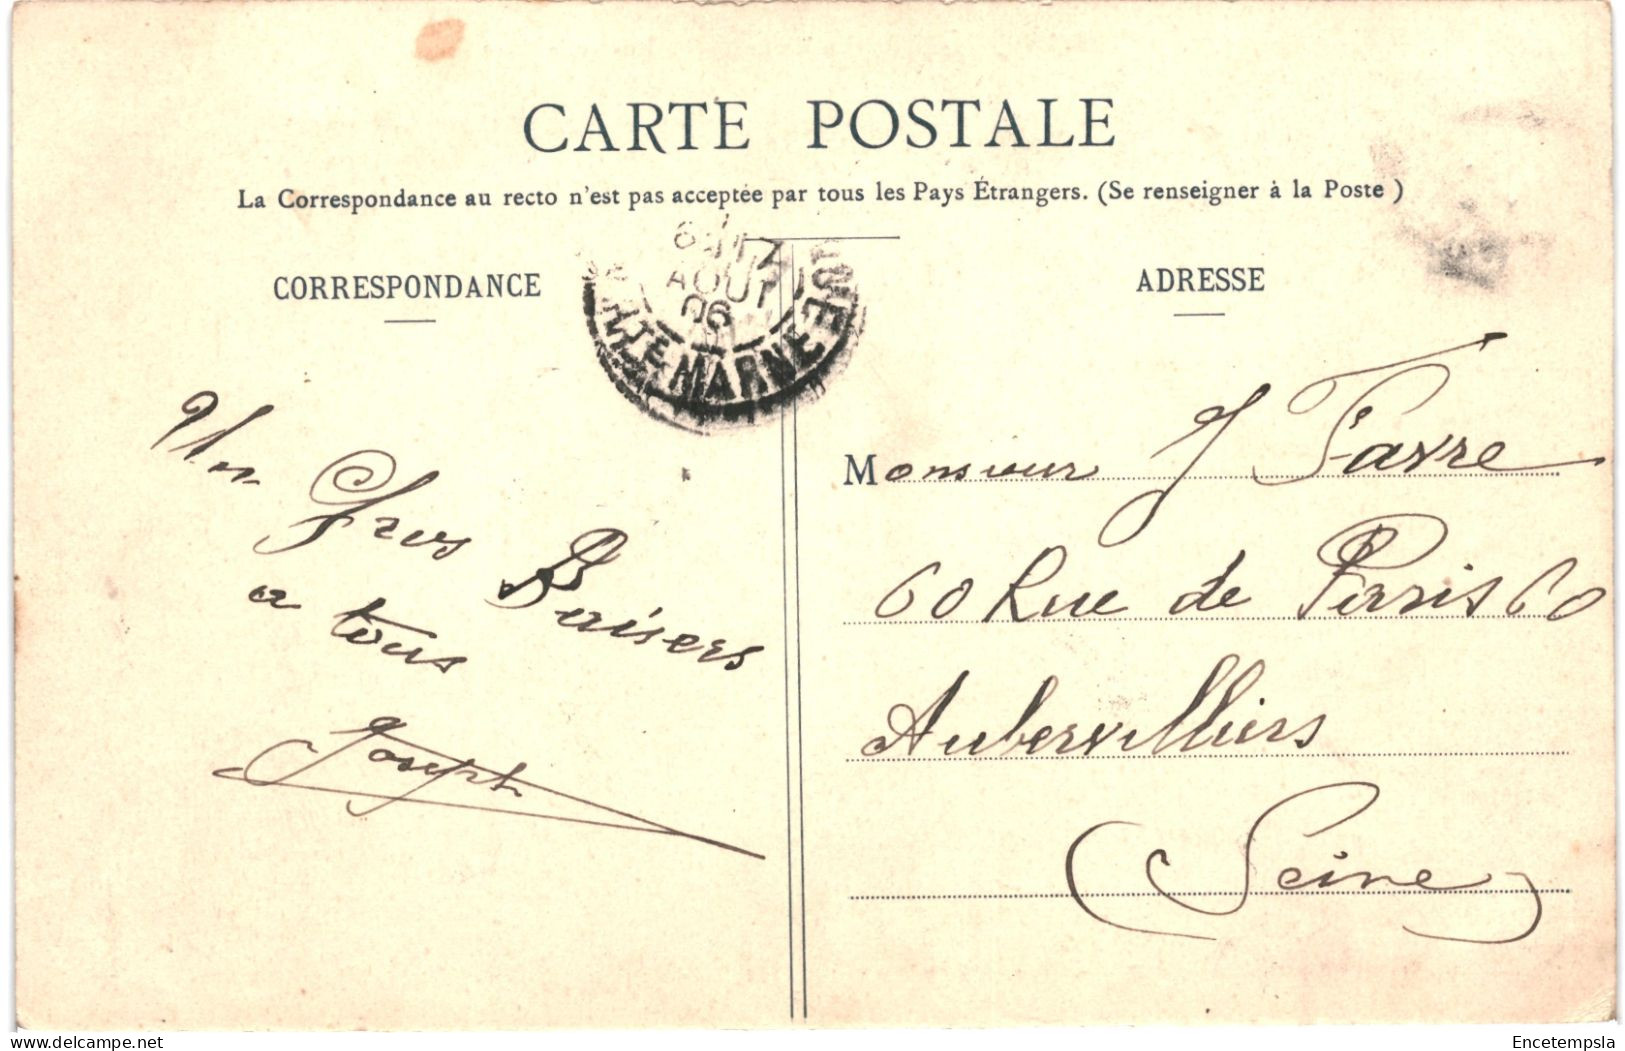 CARTE POSTALE
La Correspondance au recto n'est pas acceptée par tous les Pays Étrangers. (Se renseigner à la Poste )
CORRESPONDANCE
AOUT
06
HTE MARNE
Un Gros Baisers
a tous
Joseph
ADRESSE
Monsieur J Favre
60 Rue de Paris 60
Aubervilliers
(Seine)
Encetempsla